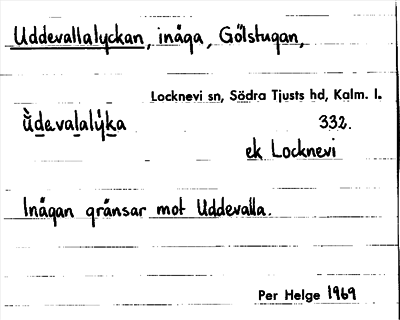 Uddevallalyckan, inäga, Gölstugan,
Locknevi sn, Södra Tjusts hd, Kalm. l.
ùdevalalýka 332.
ek Locknevi
Inägan gränsar mot Uddevalla.
Per Helge 1969